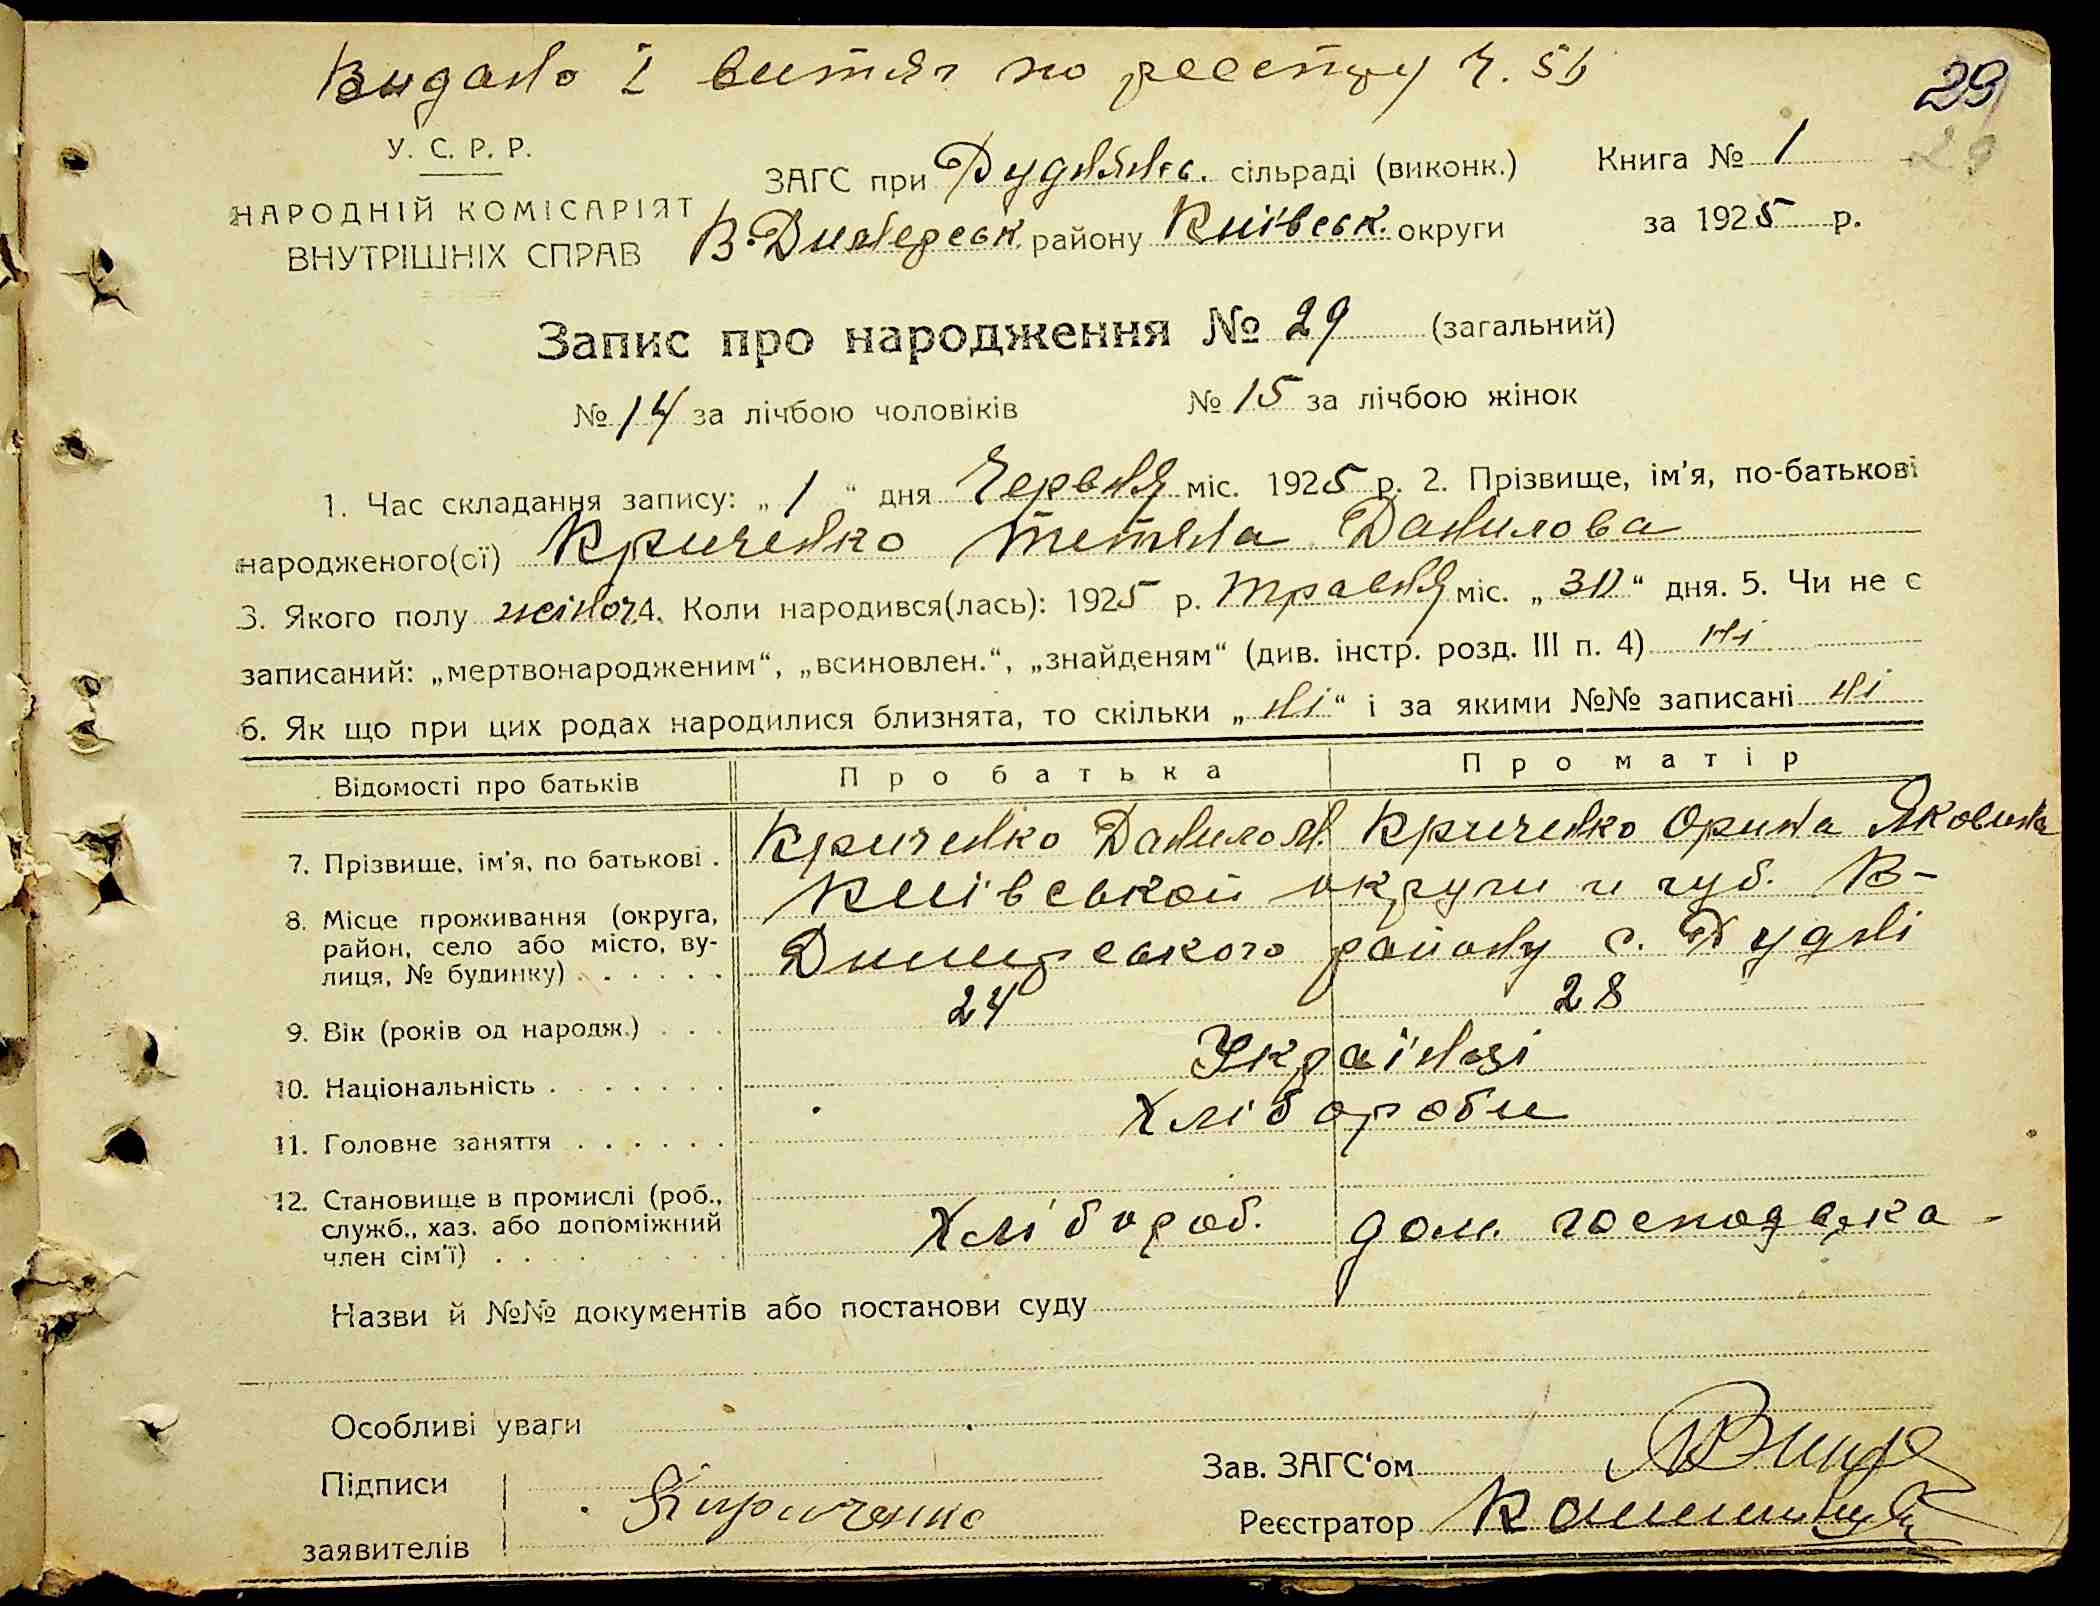 Видано 1 витяг по реєстру Ч. 56
29
29
У. С. Р. Р.
НАРОДНІЙ КОМІСАРІЯТ
ВНУТРІШНІХ СПРАВ
ЗАГС при Руднянс. сільраді (виконк.)
В-Димерськ. району Київськ. округи
Книга № 1
за 1925 р.
Запис про народження № 29 (загальний)
№ 14 за лічбою чоловіків № 15 за лічбою жінок
1. Час складання запису: „ 1 “ дня Червня міс. 1925 р. 2. Прізвище, ім'я, по-батькові
народженого(ої) Криченко Тетяна Данилова
3. Якого полу жіноч. 4. Коли народився(лась): 1925 р. Травня міс. „ 30 “ дня. 5. Чи не є
записаний: „мертвонародженим“, „всиновлен.“, „знайденям“ (див. інстр. розд. III п. 4) ні
6. Як що при цих родах народилися близнята, то скільки „ ні “ і за якими №№ записані ні
Відомості про батьків Про батька Про матір
7. Прізвище, ім'я, по батькові . Криченко Данило Криченко Орина Яковина
8. Місце проживання (округа, район, село або місто, вулиця, № будинку) . . . . . Київської округи и губ. В-
Димерського району с. Рудні
9. Вік (років од народж.) . . . 24 28
10. Національність . . . . . . . Українці
11. Головне заняття . . . . . . Хлібороби
12. Становище в промислі (роб.,
служб., хаз. або допоміжний
член сім'ї) . . . . . . . . Хлібороб. дом. господарка
Назви й №№ документів або постанови суду
Особливі уваги
Підписи
заявителів
Кириченко
Зав. ЗАГС'ом
Реєстратор